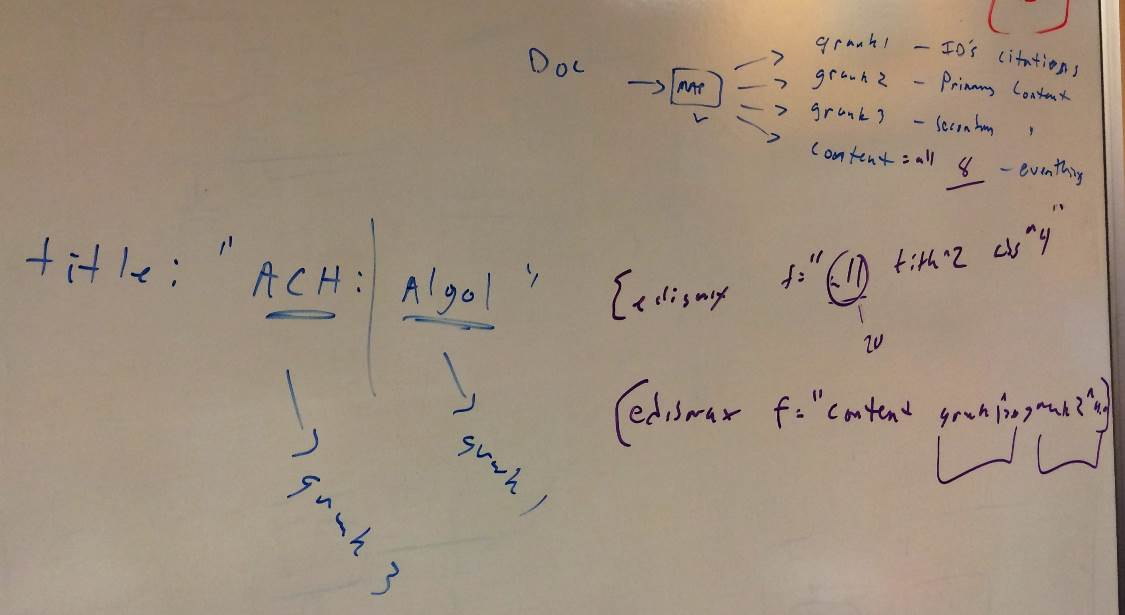 Doc
MAP
grank1 - ID's citations
grank2 - Primary Content
grank3 - secondary "
content = all 8 - everything
title: "ACH: Algol"
grank 3
grank 1
{edismax f=" all title^2 abs^4"
20
{edismax f="content grank1 grank2